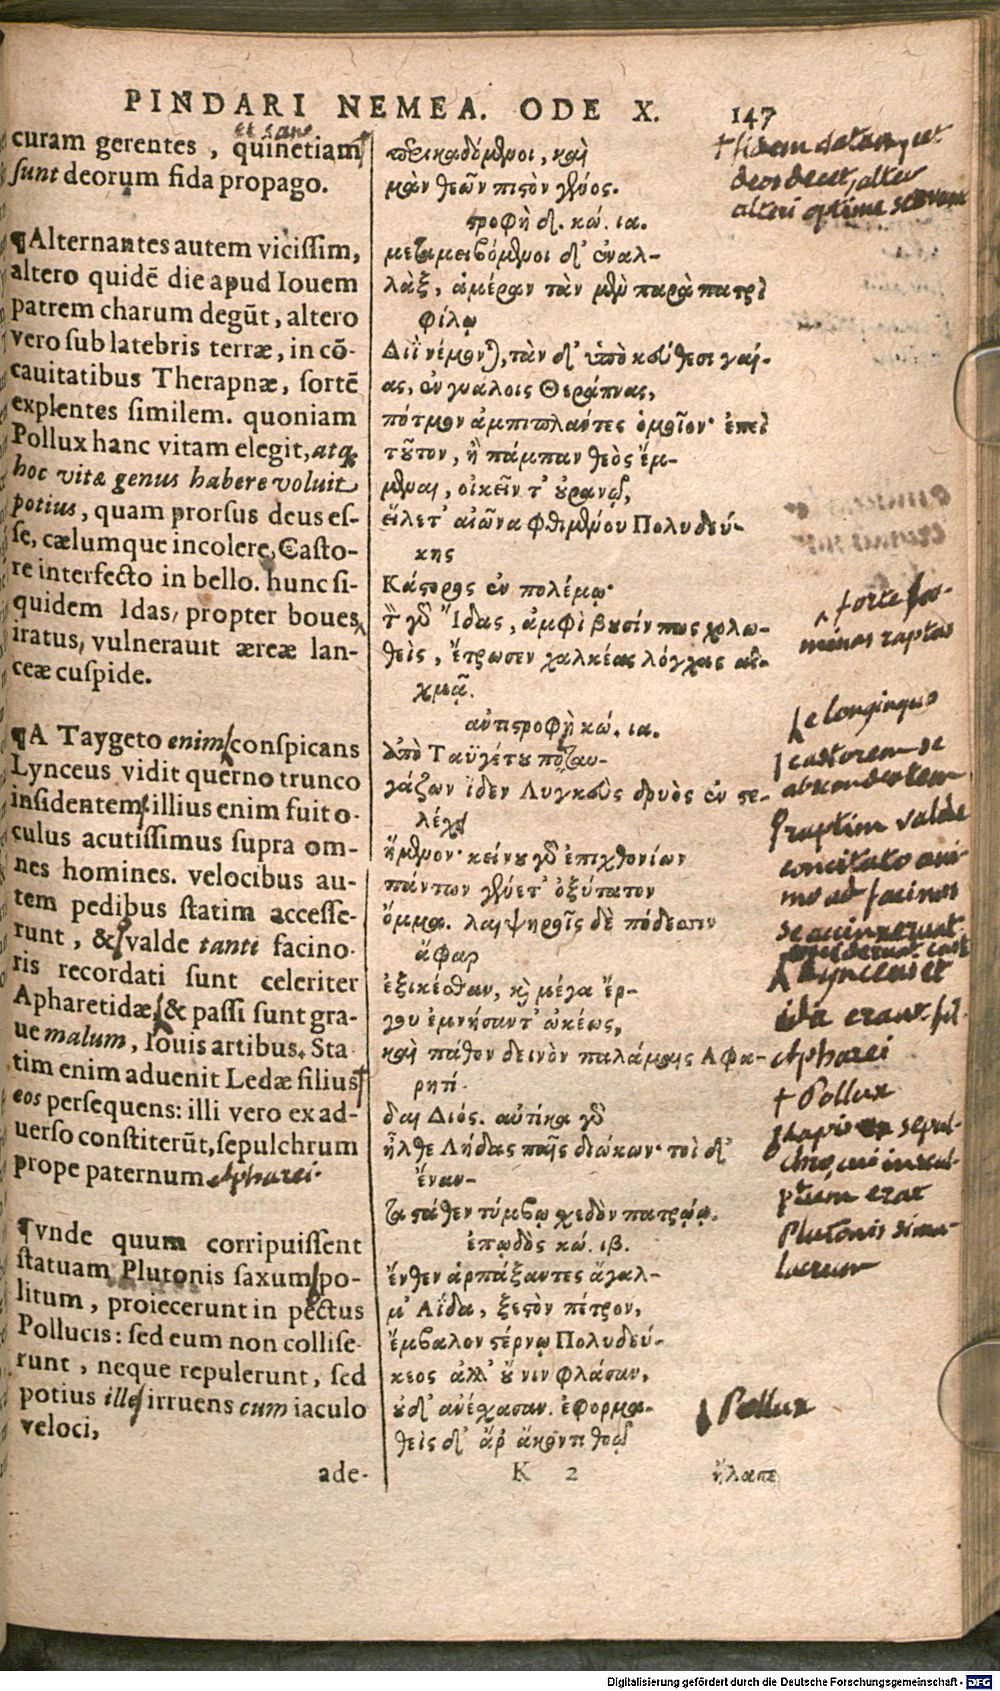 PINDARI NEMEA. ODE X. 147
curam gerentes, quinetiam
et sane
sunt deorum fida propago.
¶Alternantes autem viciſſim,
altero quidē die apud Iouem
patrem charum degūt, altero
vero ſub latebris terræ, in cō-
cauitatibus Therapnæ, ſortē
explentes ſimilem. quoniam
Pollux hanc vitam elegit, atq;
hoc vitæ genus habere voluit
potius, quam prorſus deus eſ-
ſe, cælumque incolere, Caſto-
re interfecto in bello. hunc ſi-
quidem Idas, propter boues
iratus, vulnerauit æreæ lan-
ceæ cuſpide.
¶A Taygeto enim conſpicans
Lynceus vidit querno trunco
inſidentem: illius enim fuit o-
culus acutiſſimus ſupra om-
nes homines. velocibus au-
tem pedibus ſtatim acceſſe-
runt, & valde tanti facino-
ris recordati sunt celeriter
Apharetidæ, & paſſi ſunt gra-
ue malum, Iouis artibus. Sta
tim enim aduenit Ledæ filius
eos perſequens: illi vero ex ad-
uerſo conſtiterūt, ſepulchrum
prope paternum Apharei.
¶Vnde quum corripuiſſent
ſtatuam Plutonis ſaxum po-
litum, proiecerunt in pectus
Pollucis: ſed eum non colliſe-
runt, neque repulerunt, ſed
potius ille irruens cum iaculo
veloci,
ade-
περικαδόμενοι, καὶ
μὰν θεῶν πιϛὸν γένος.
ϛροφὴ δ. κώ. ια.
μεταμειβόμενοι δ' ἐναλ-
λὰξ, ἁμέραν τὰν μὲν παρὰ πατρὶ
φίλῳ
Διῒ νέμονται, τὰν δ' ὑπὸ κεύθεσι γαί-
ας, ἐν γυάλοις Θεράπνας,
πότμον ἀμπιπλάντες ὁμοῖον· ἐπεὶ
τοῦτον, ἢ πάμπαν θεὸς ἔμ-
μεναι, οἰκεῖν τ' οὐρανῷ,
εἵλετ' αἰῶνα φθιμένου Πολυδεύ-
κης
Κάϛορος ἐν πολέμῳ·
τὸν γὰρ Ἴδας, ἀμφὶ βουσίν πως χολω-
θεὶς, ἔτρωσεν χαλκέας λόγχας αἰ-
χμᾷ.
ἀντιϛροφὴ κώ. ια.
Ἀπὸ Ταϋγέτου πόταυ-
γάζων ἴδεν Λυγκεὺς δρυὸς ἐν ϛε-
λέχει
ἥμενον· κείνου γὰρ ἐπιχθονίων
πάντων γένετ' ὀξύτατον
ὄμμα. λαιψηροῖς δὲ πόδεσσιν
ἄφαρ
ἐξικέσθαν, καὶ μέγα ἔρ-
γον ἐμνήσαντ' ὠκέως,
καὶ πάθον δεινὸν παλάμαις Ἀφα-
ρητί-
δαι Διός. αὐτίκα γὰρ
ἦλθε Λήδας παῖς διώκων· τοὶ δ'
ἔναν-
τα ϛάθεν τύμβῳ σχεδὸν πατρῴῳ.
ἐπῳδὸς κώ. ιβ.
ἔνθεν ἁρπάξαντες ἄγαλ-
μ' Ἀΐδα, ξεϛὸν πέτρον,
ἔμβαλον ϛέρνῳ Πολυδεύ-
κεος ἀλλ' οὔ νιν φλάσαν,
οὐδ' ἀνέχασαν. ἐφορμα-
θεὶς δ' ἄρ' ἄκοντι θοῷ
K 2
ἤλασε
deos decet, alter
alteri optime
forte foe-
minas raptas
e longinquo
castorem se
abscondentem
raptim valde
concitato ani-
mo ad facinus
se accinxerunt
Lynceus et
ida erant fil.
Apharei
† Pollux
sepul-
ptum erat
Plutonis simu-
lacrum
Pollux
Digitalisierung gefördert durch die Deutsche Forschungsgemeinschaft - DFG